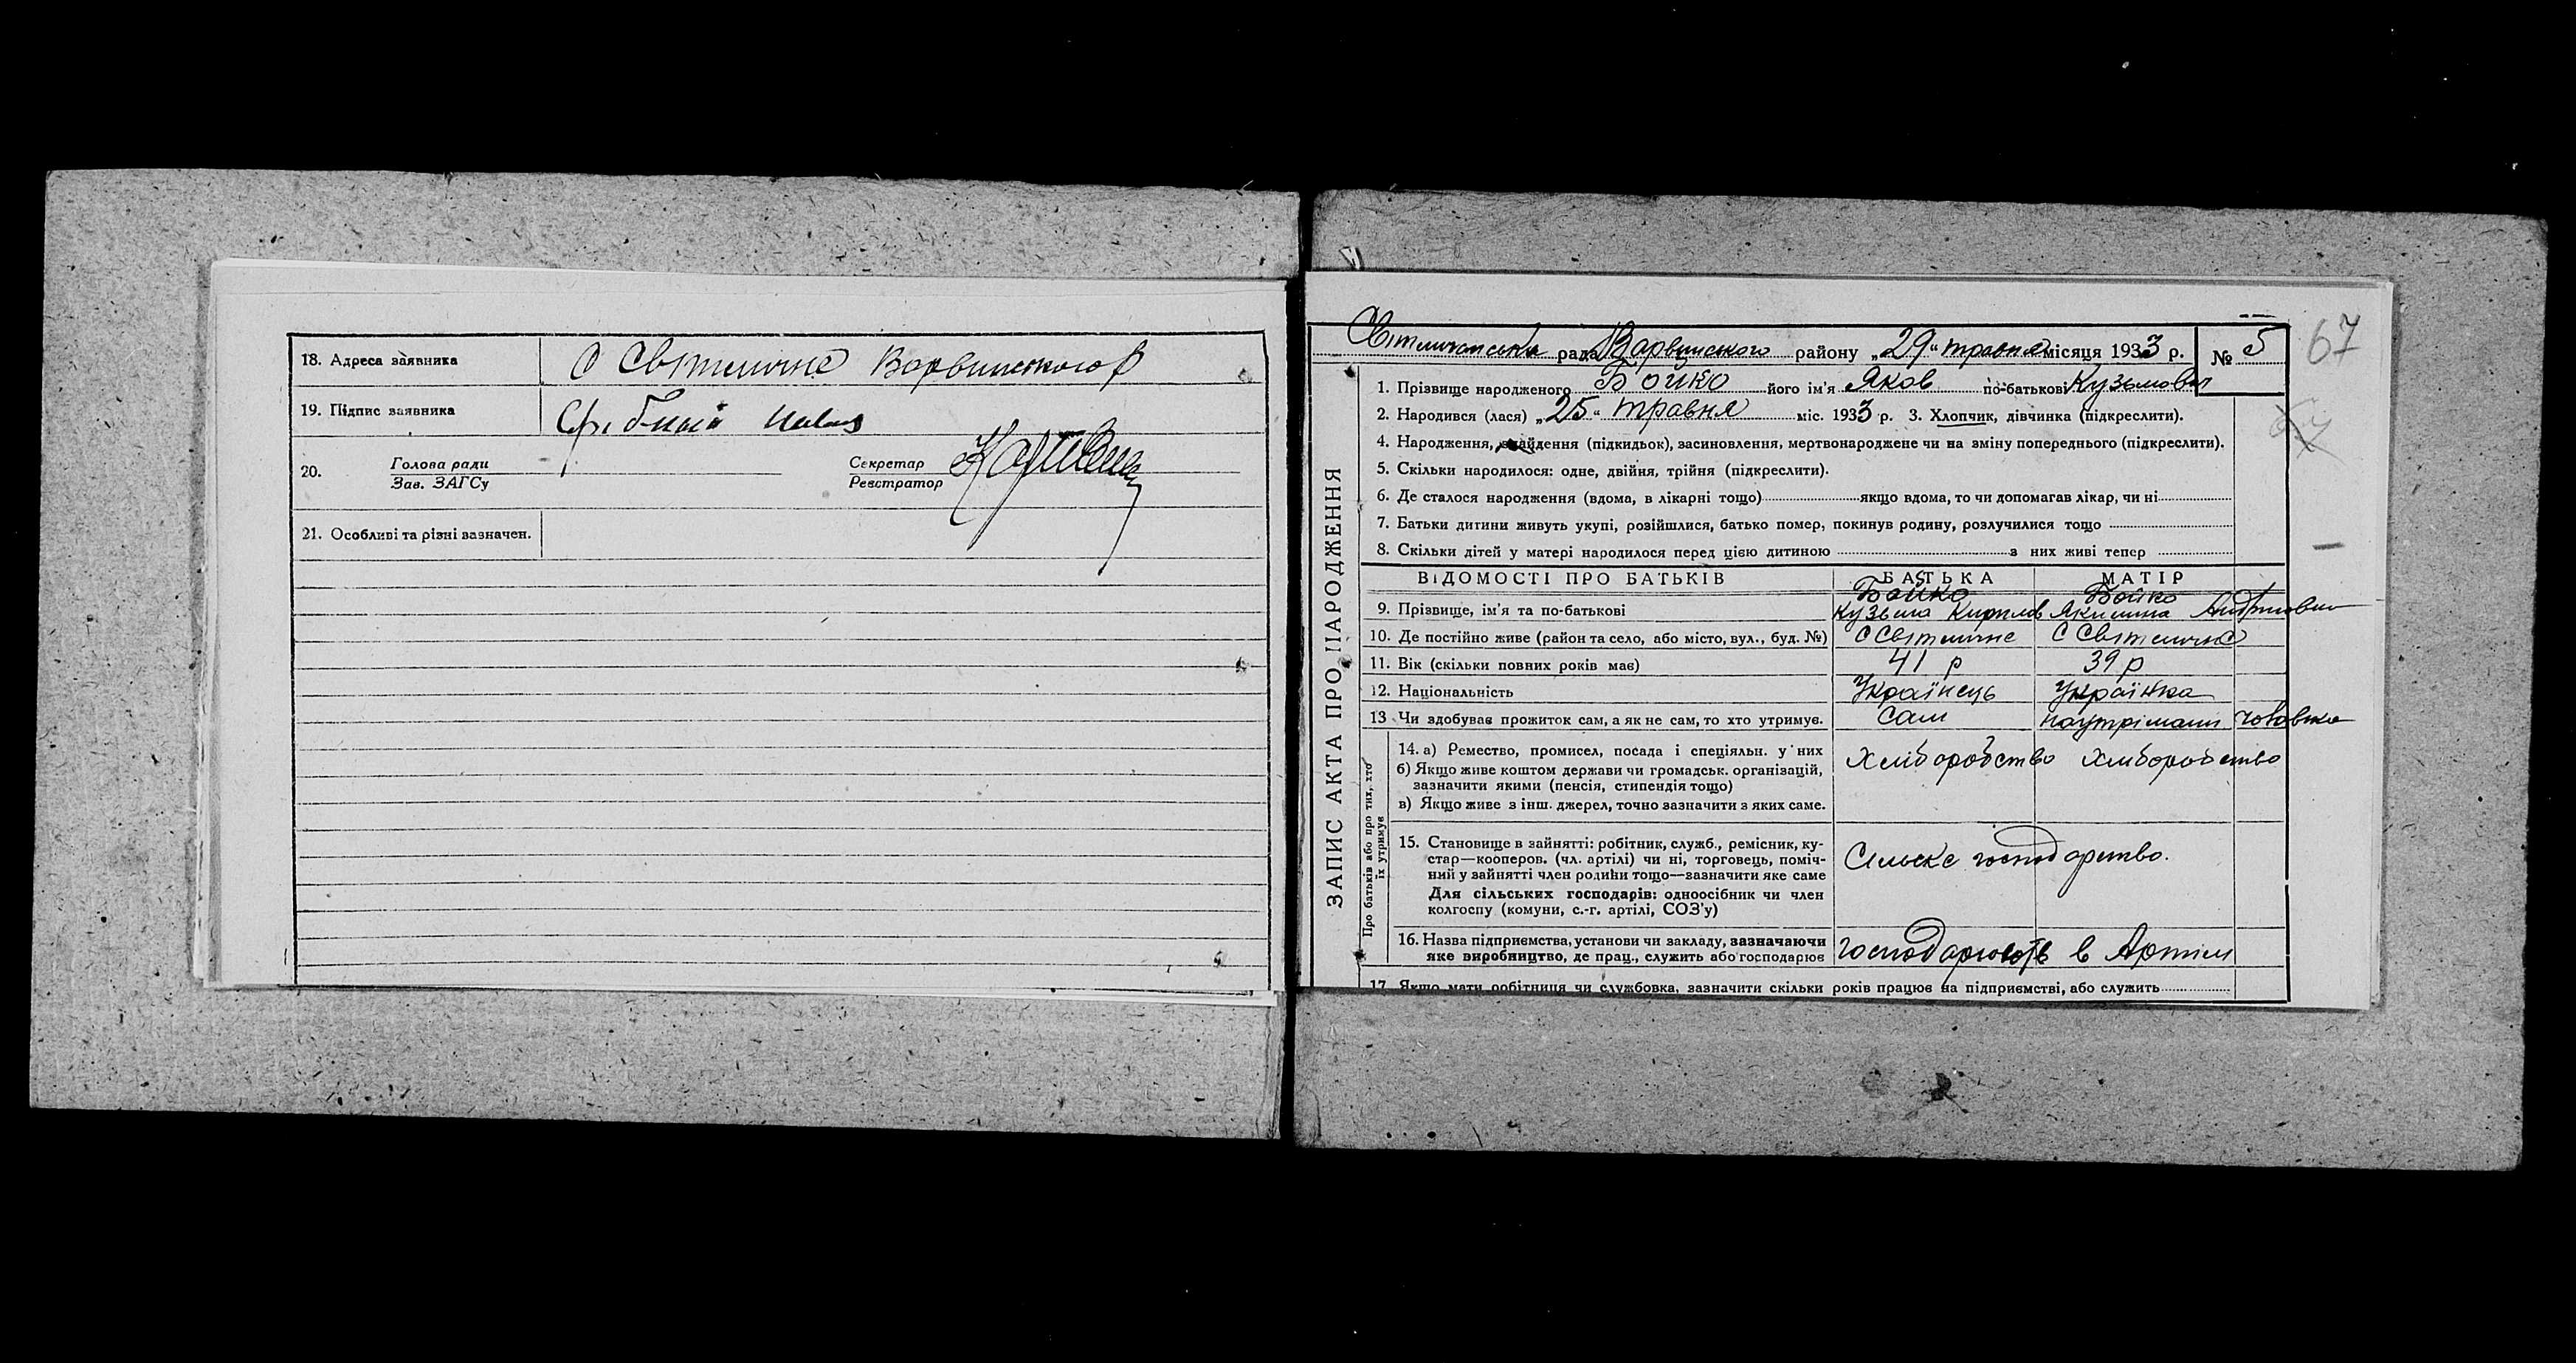 18. Адреса заявника С Світличне Варвинського р
19. Підпис заявника Срібний
20. Голова ради
Зав. ЗАГСу
Секретар
Реєстратор
21. Особливі та різні зазначен.
67
ЗАПИС АКТА ПРО НАРОДЖЕННЯ
Світличанська рада Варвинського району „29“ травня місяця 1933 р. № 5
1. Прізвище народженого Бойко його ім'я Яков по-батькові Кузьмович
2. Народився (лася) „25“ травня міс. 1933 р. 3. Хлопчик, дівчинка (підкреслити).
4. Народження, знайдення (підкидьок), засиновлення, мертвонароджене чи на зміну попереднього (підкреслити).
5. Скільки народилося: одне, двійня, трійня (підкреслити).
6. Де сталося народження (вдома, в лікарні тощо) якщо вдома, то чи допомагав лікар, чи ні
7. Батьки дитини живуть укупі, розійшлися, батько помер, покинув родину, розлучилися тощо
8. Скільки дітей у матері народилося перед цією дитиною з них живі тепер
ВІДОМОСТІ ПРО БАТЬКІВ БАТЬКА МАТІР
Бойко Бойко
9. Прізвище, ім'я та по-батькові Кузьма Кирилов Якилина
10. Де постійно живе (район та село, або місто, вул., буд. №) С Світличне С Світлична
11. Вік (скільки повних років має) 41 р 39 р
12. Національність Українець Українка
13 Чи здобуває прожиток сам, а як не сам, то хто утримує. Сам наутріманн чоловіка
Про батьків або про тих, хто
їх утримує
14. а) Ремество, промисел, посада і спеціяльн. у них Хліборобство Хліборобство
б) Якщо живе коштом держави чи громадськ. організацій,
зазначити якими (пенсія, стипендія тощо)
в) Якщо живе з інш. джерел, точно зазначити з яких саме.
15. Становище в зайнятті: робітник, служб., ремісник, ку-
стар—кооперов. (чл. артілі) чи ні, торговець, поміч- Сільске господарство.
ний у зайнятті член родини тощо—зазначити яке саме
Для сільських господарів: одноосібник чи член
колгоспу (комуни, с.-г. артілі, СОЗ'у)
16. Назва підприємства, установи чи закладу, зазначаючи
яке виробництво, де прац., служить або господарює господарюють в Артілі
17. Якщо мати робітниця чи службовка, зазначити скільки років працює на підприємстві, або служить